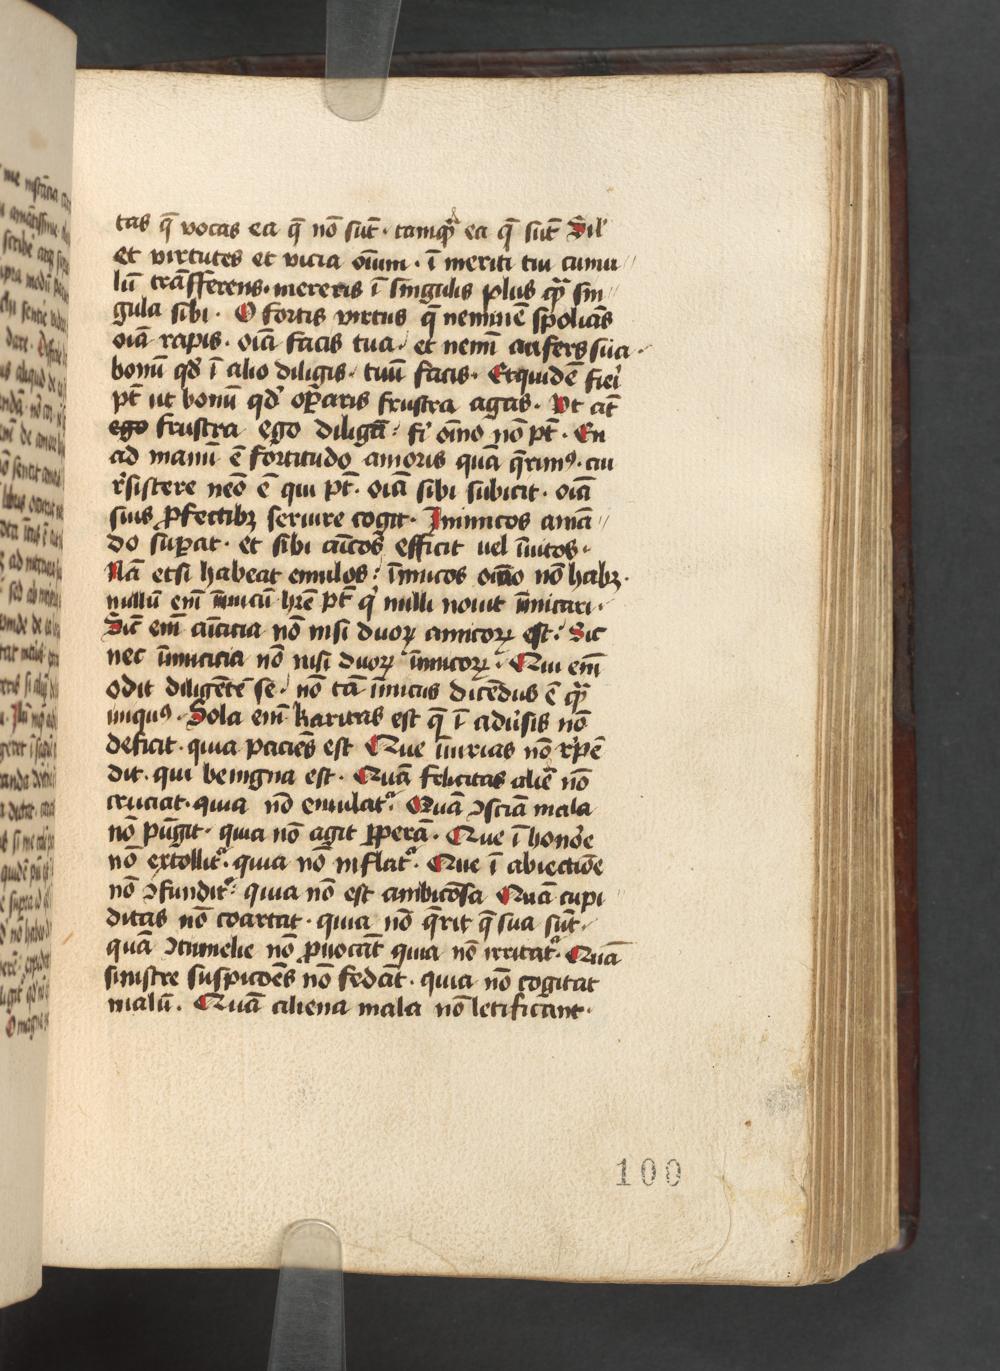 tas q̄ vocas ea q̄ nō sūt · tamqᷓ ea q̄ sūt Sil'
et virtutes et vicia oīum · ī meriti tui cumu
lū trāfferens · mereris ī singulis plus qᷓ sin
gula sibi · O fortis virtus q̄ neminē spolias
oīa rapis · oīa facis tua · et nemī aufers sua ·
bonū qđ ī alio diligis · tuū facis · Et quidē fieī
pt̄ ut bonū qđ oꝑaris frustra agas · Vt aūt
ego frustra ego diligā : fī oīno nō pt̄ · En
ad manū ē fortitudo amoris quā q̄rimꝰ · cui
r̄sistere nēo ē qui pt̄ · oīa sibi subicit · oīa
suis ꝓfectibꝫ seruire cogit · Inimicos amā
do suꝑat · et sibi amicos efficit uel īuitos ·
Nā etsi habeat emulos : īimicos oīno nō habꝫ ·
nullū em̄ inimicū hr̄e pt̄ q' nulli nouit inimicari ·
Sic em̄ amīcitia nō nisi duoꝝ amicoꝝ est : Sic
nec inimicicia nō nisi duoꝝ inimicoꝝ · Qui em̄
odit diligētē se · nō tā īimicus dicēdus ē qᷓ
iniquꝰ · Sola em̄ karitas est q̄ ī adūsis nō
deficit · quia paciēs est Que iniurias nō r̄pē
dit · qui benigna est · Quā felicitas aliē nō
cruciat · quia nō emulatᷣ Quā ꝯsciā mala
nō pūgit · quia nō agit ꝑperā · Que ī honōe
nō extollitᷣ · quia nō inflatᷣ · Que ī abiectiōe
nō ꝯfunditᷣ : quia nō est ambicōsa Quā cupi
ditas nō coartat · quia nō q̄rit q̄ sua sūt ·
quā ꝯtumelie nō ꝓuocāt quia nō irritatᷣ · Quā
sinistre suspicōēs nō fedāt · quia nō cogitat
malū · Quā aliena mala nō letificant ·
100